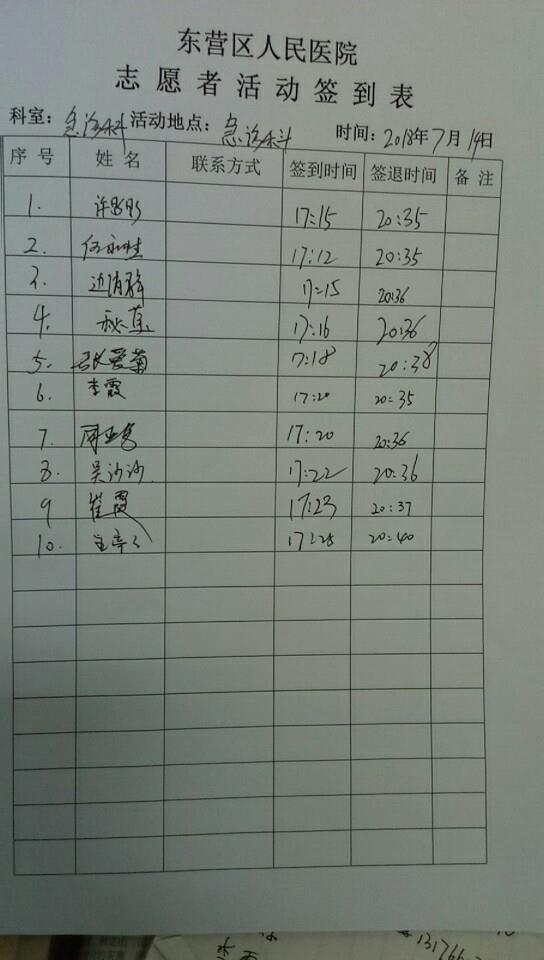 东营区人民医院
志愿者活动签到表
科室：急诊科 活动地点：急诊科 时间：2018年7月14日
序号 姓名 联系方式 签到时间 签退时间 备注
1. 17:15 20:35
2. 17:12 20:35
3. 17:15 20:36
4. 17:16 20:36
5. 张爱菊 17:18 20:38
6. 李霞 17:20 20:35
7. 17:20 20:36
8. 吴沙沙 17:22 20:36
9 崔霞 17:23 20:37
10. 17:25 20:40